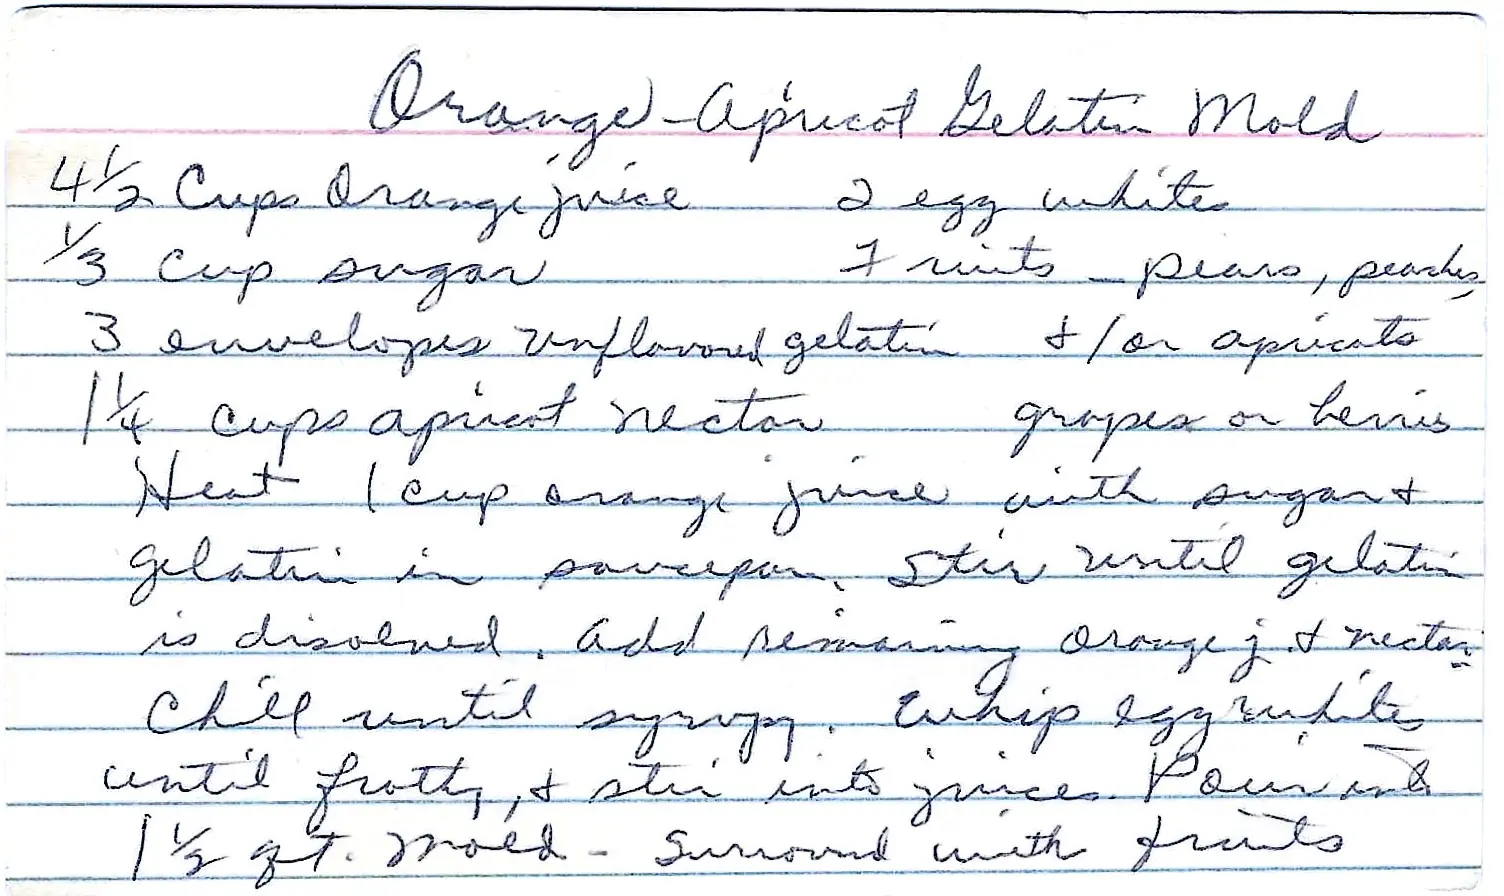 Orange-Apricot Gelatin Mold
4 1/2 Cups Orange juice 2 egg whites
1/3 cup sugar Fruits - pears, peaches,
3 envelopes unflavored gelatin +/or apricots
1 1/4 cups apricot nectar grapes or berries
Heat 1 cup orange juice with sugar +
gelatin in saucepan. Stir until gelatin
is disolved. Add remaining orange j. + nectar.
Chill until syrupy. Whip egg whites
until frothy, + stir into juices. Pour into
1 1/2 qt. mold - Surround with fruits